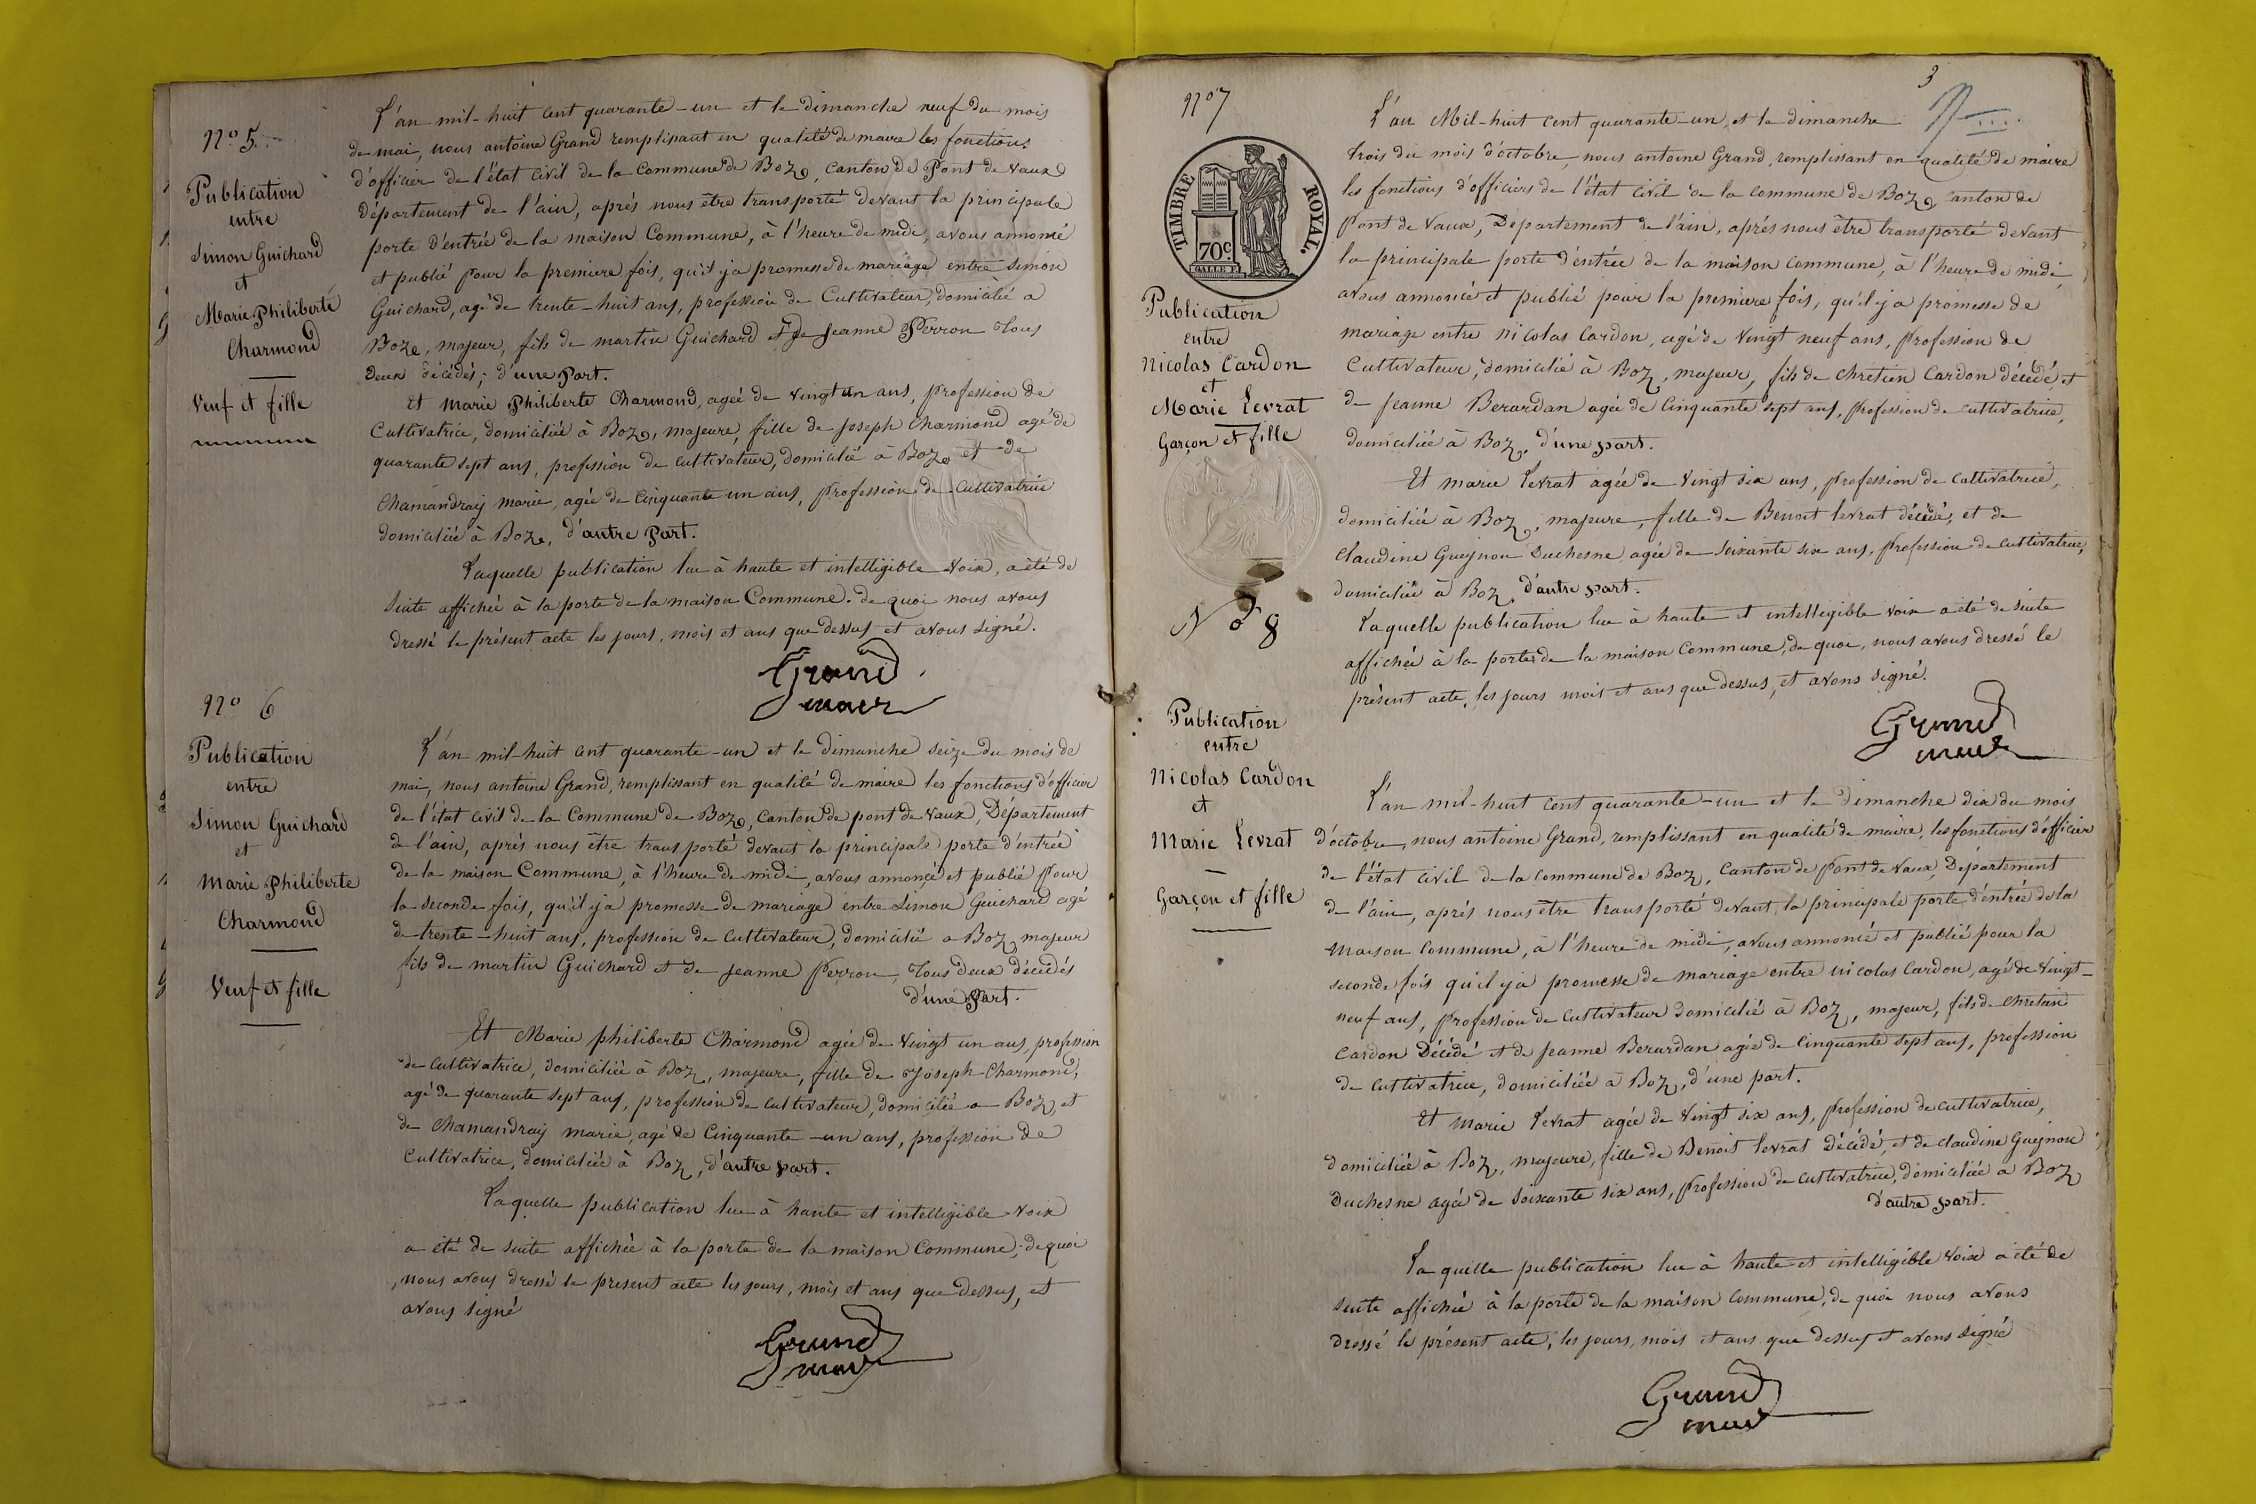 N° 5
Publication
entre
Simon Guichard
et
Marie Philiberte
Charmond
Veuf et fille
L'an mil-huit cent quarante-un et le dimanche neuf du mois
de mai, nous antoine Grand remplissant en qualité de maire les fonctions
d'officier de l'état civil de la Commune de Boz, Canton de Pont de Vaux
Département de l'ain, après nous être transporté devant la principale
porte d'entrée de la maison Commune, à l'heure de midi, avons annoncé
et publié pour la premiere fois, qu'il y a promesse de mariage entre Simon
Guichard, agé de trente-huit ans, profession de Cultivateur, domicilié a
Boze, majeur, fils de martin Guichard et de Jeanne Perron Tous
Deux décédés; d'une Part.
Et Marie Philiberte Charmond, agée de vingt un ans, profession de
Cultivatrice, domiciliée à Boz, majeure, fille de Joseph Charmond agé de
quarante sept ans, profession de cultivateur, domicilié à Boz et de
Chamandray Marie, agée de cinquante un ans, profession de Cultivatrice
domiciliée à Boze, d'autre Part.
Laquelle publication lue à haute et intelligible voix, a été de
suite affichée à la porte de la maison Commune. de quoi nous avons
dressé le présent acte les jours, mois et ans que dessus et avons signé.
Grand
maire
N° 6
Publication
entre
Simon Guichard
et
Marie Philiberte
Charmond
Veuf et fille
L'an mil-huit cent quarante-un et le dimanche seize du mois de
mai, nous antoine Grand, remplissant en qualité de maire les fonctions d'officier
de l'état civil de la Commune de Boz, Canton de pont de Vaux, Département
de l'ain, après nous être transporté devant la principale porte d'entrée
de la maison Commune, à l'heure de midi, avons annoncé et publié pour
la seconde fois, qu'il y a promesse de mariage entre Simon Guichard agé
de trente-huit ans, profession de Cultivateur, domicilié a Boz, majeur
fils de martin Guichard et de Jeanne Perron, Tous deux décédés
d'une Part.
Et Marie philiberte Charmond agée de vingt un ans, profession
de cultivatrice, domiciliée à Boz, majeure, fille de Joseph Charmond,
agé de quarante sept ans, profession de cultivateur, domicilié a Boz, et
de Chamandray marie, agé de Cinquante-un ans, profession de
Cultivatrice, domiciliée à Boz, d'autre part.
Laquelle publication lue à haute et intelligible voix
a été de suite affichée à la porte de la maison Commune; de quoi
nous avons dressé le present acte les jours, mois et ans que dessus, et
avons signé
Grand
maire
3
N° 7
TIMBRE ROYAL.
70c
Publication
entre
Nicolas Cardon
et
Marie Levrat
Garçon et fille
L'an Mil-huit cent quarante-un, et le dimanche
trois du mois d'octobre, nous antoine Grand, remplissant en qualité de maire
les fonctions d'officiers de l'état civil de la commune de Boz, canton de
Pont de Vaux, Departement de l'ain, après nous être transporté devant
la principale porte d'entrée de la maison commune, à l'heure de midi,
avons annoncé et publié pour la premiere fois, qu'il y a promesse de
mariage entre nicolas Cardon, agé de vingt neuf ans, profession de
Cultivateur, domicilié à Boz, majeur, fils de chretien Cardon décédé et
de Jeanne Berardan agée de Cinquante sept ans, profession de cultivatrice,
domiciliée à Boz, d'une part.
Et marie Levrat agée de vingt six ans, profession de cultivatrice,
domiciliée à Boz, majeure, fille de Benoit levrat décédé, et de
claudine Guejnon Duchesne agée de soixante six ans, profession de cultivatrice,
domiciliée à Boz, d'autre part.
Laquelle publication lue à haute et intelligible voix a été de suite
affichée à la porte de la maison Commune, de quoi, nous avons dressé le
présent acte, les jours mois et ans que dessus, et avons signé.
Grand
maire
N° 8
Publication
entre
Nicolas Cardon
et
Marie Levrat
Garçon et fille
L'an mil-huit cent quarante-un et le dimanche dix du mois
d'octobre, nous antoine Grand, remplissant en qualité de maire, les fonctions d'officier
de l'état civil de la commune de Boz, Canton de Pont de Vaux, Département
de l'ain, après nous être transporté devant la principale porte d'entrée de la
maison commune, à l'heure de midi, avons annoncé et publié pour la
seconde fois qu'il y a promesse de mariage entre nicolas Cardon, agé de vingt-
neuf ans, profession de cultivateur domicilié à Boz, majeur, fils de chretien
Cardon Décédé et de Jeanne Berardan agée de Cinquante sept ans, profession
de cultivatrice, domiciliée à Boz, d'une part.
Et marie Levrat agée de vingt six ans, profession de cultivatrice,
domiciliée à Boz, majeure, fille de Benoit levrat Décédé, et de claudine Guejnon
Duchesne agée de soixante six ans, profession de cultivatrice, domiciliée a Boz
d'autre part.
Laquelle publication lue à haute et intelligible voix a été de
suite affichée à la porte de la maison commune, de quoi nous avons
dressé le présent acte, les jours, mois et ans que dessus et avons signé
Grand
maire